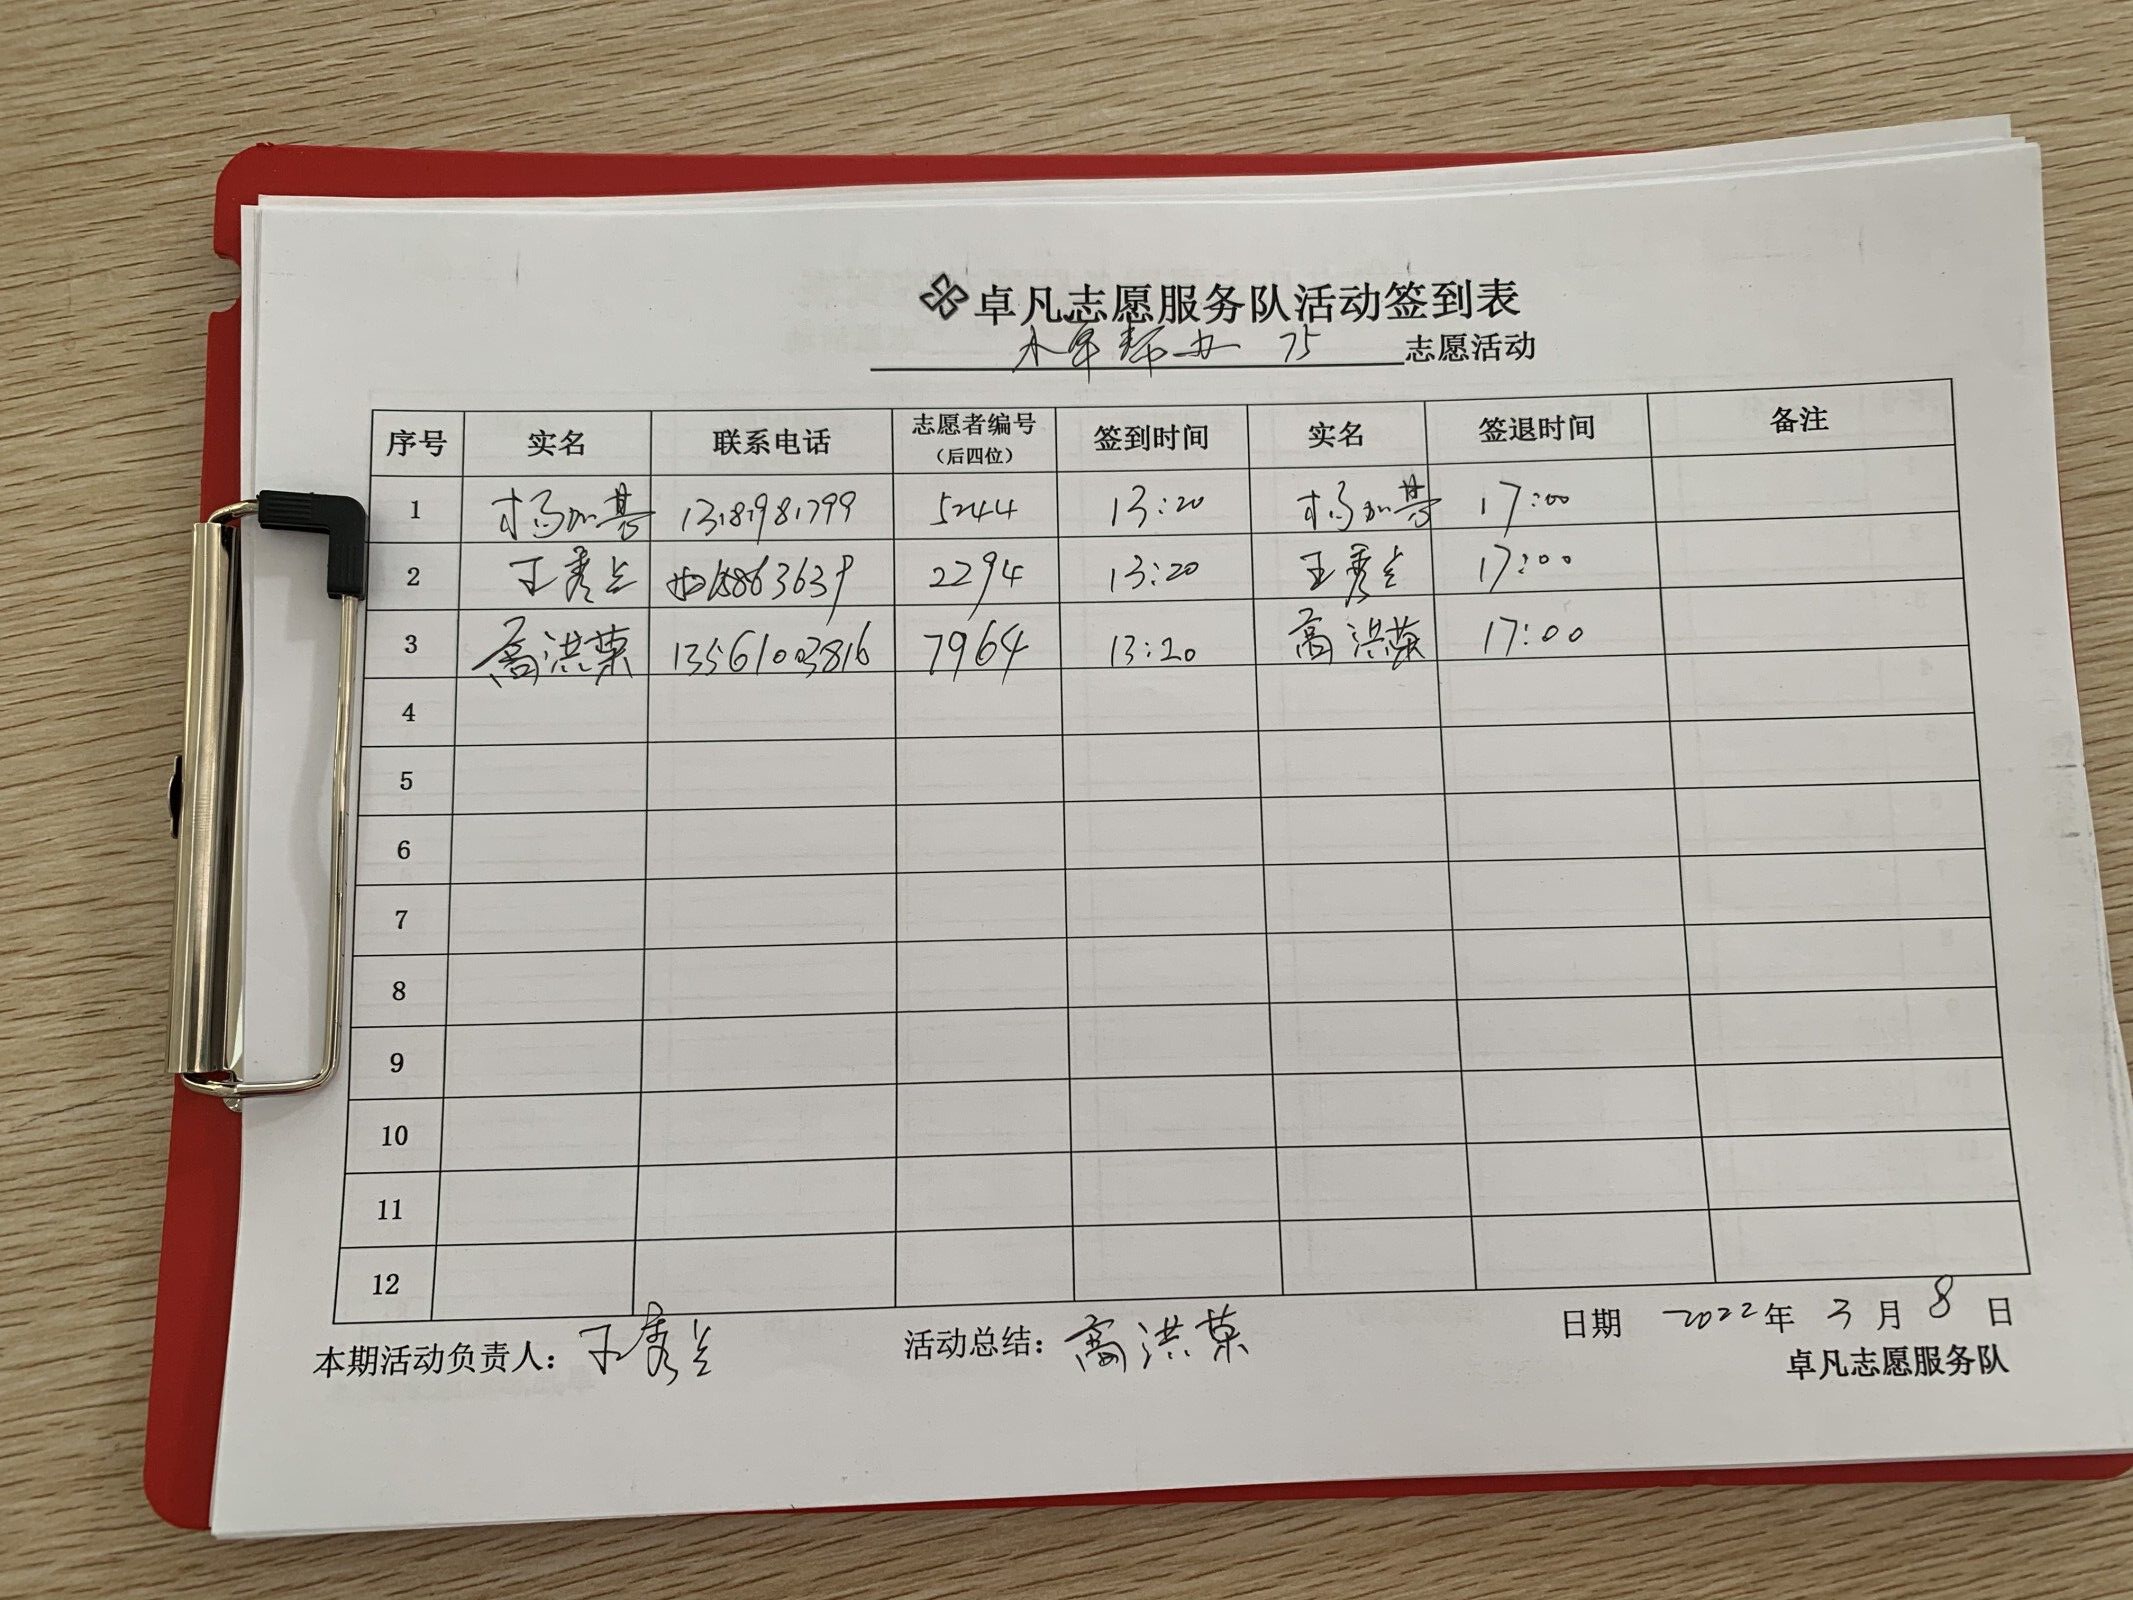 卓凡志愿服务队活动签到表
帮办 75 志愿活动
序号 实名 联系电话 志愿者编号（后四位） 签到时间 实名 签退时间 备注
1 杨加 5244 13:20 杨加 17:00
2 王秀兰 2294 13:20 王秀兰 17:00
3 高洪荣 13561003816 7964 13:20 高洪荣 17:00
4
5
6
7
8
9
10
11
12
本期活动负责人：王秀兰 活动总结：高洪荣 日期 2022年 3月 8日
卓凡志愿服务队